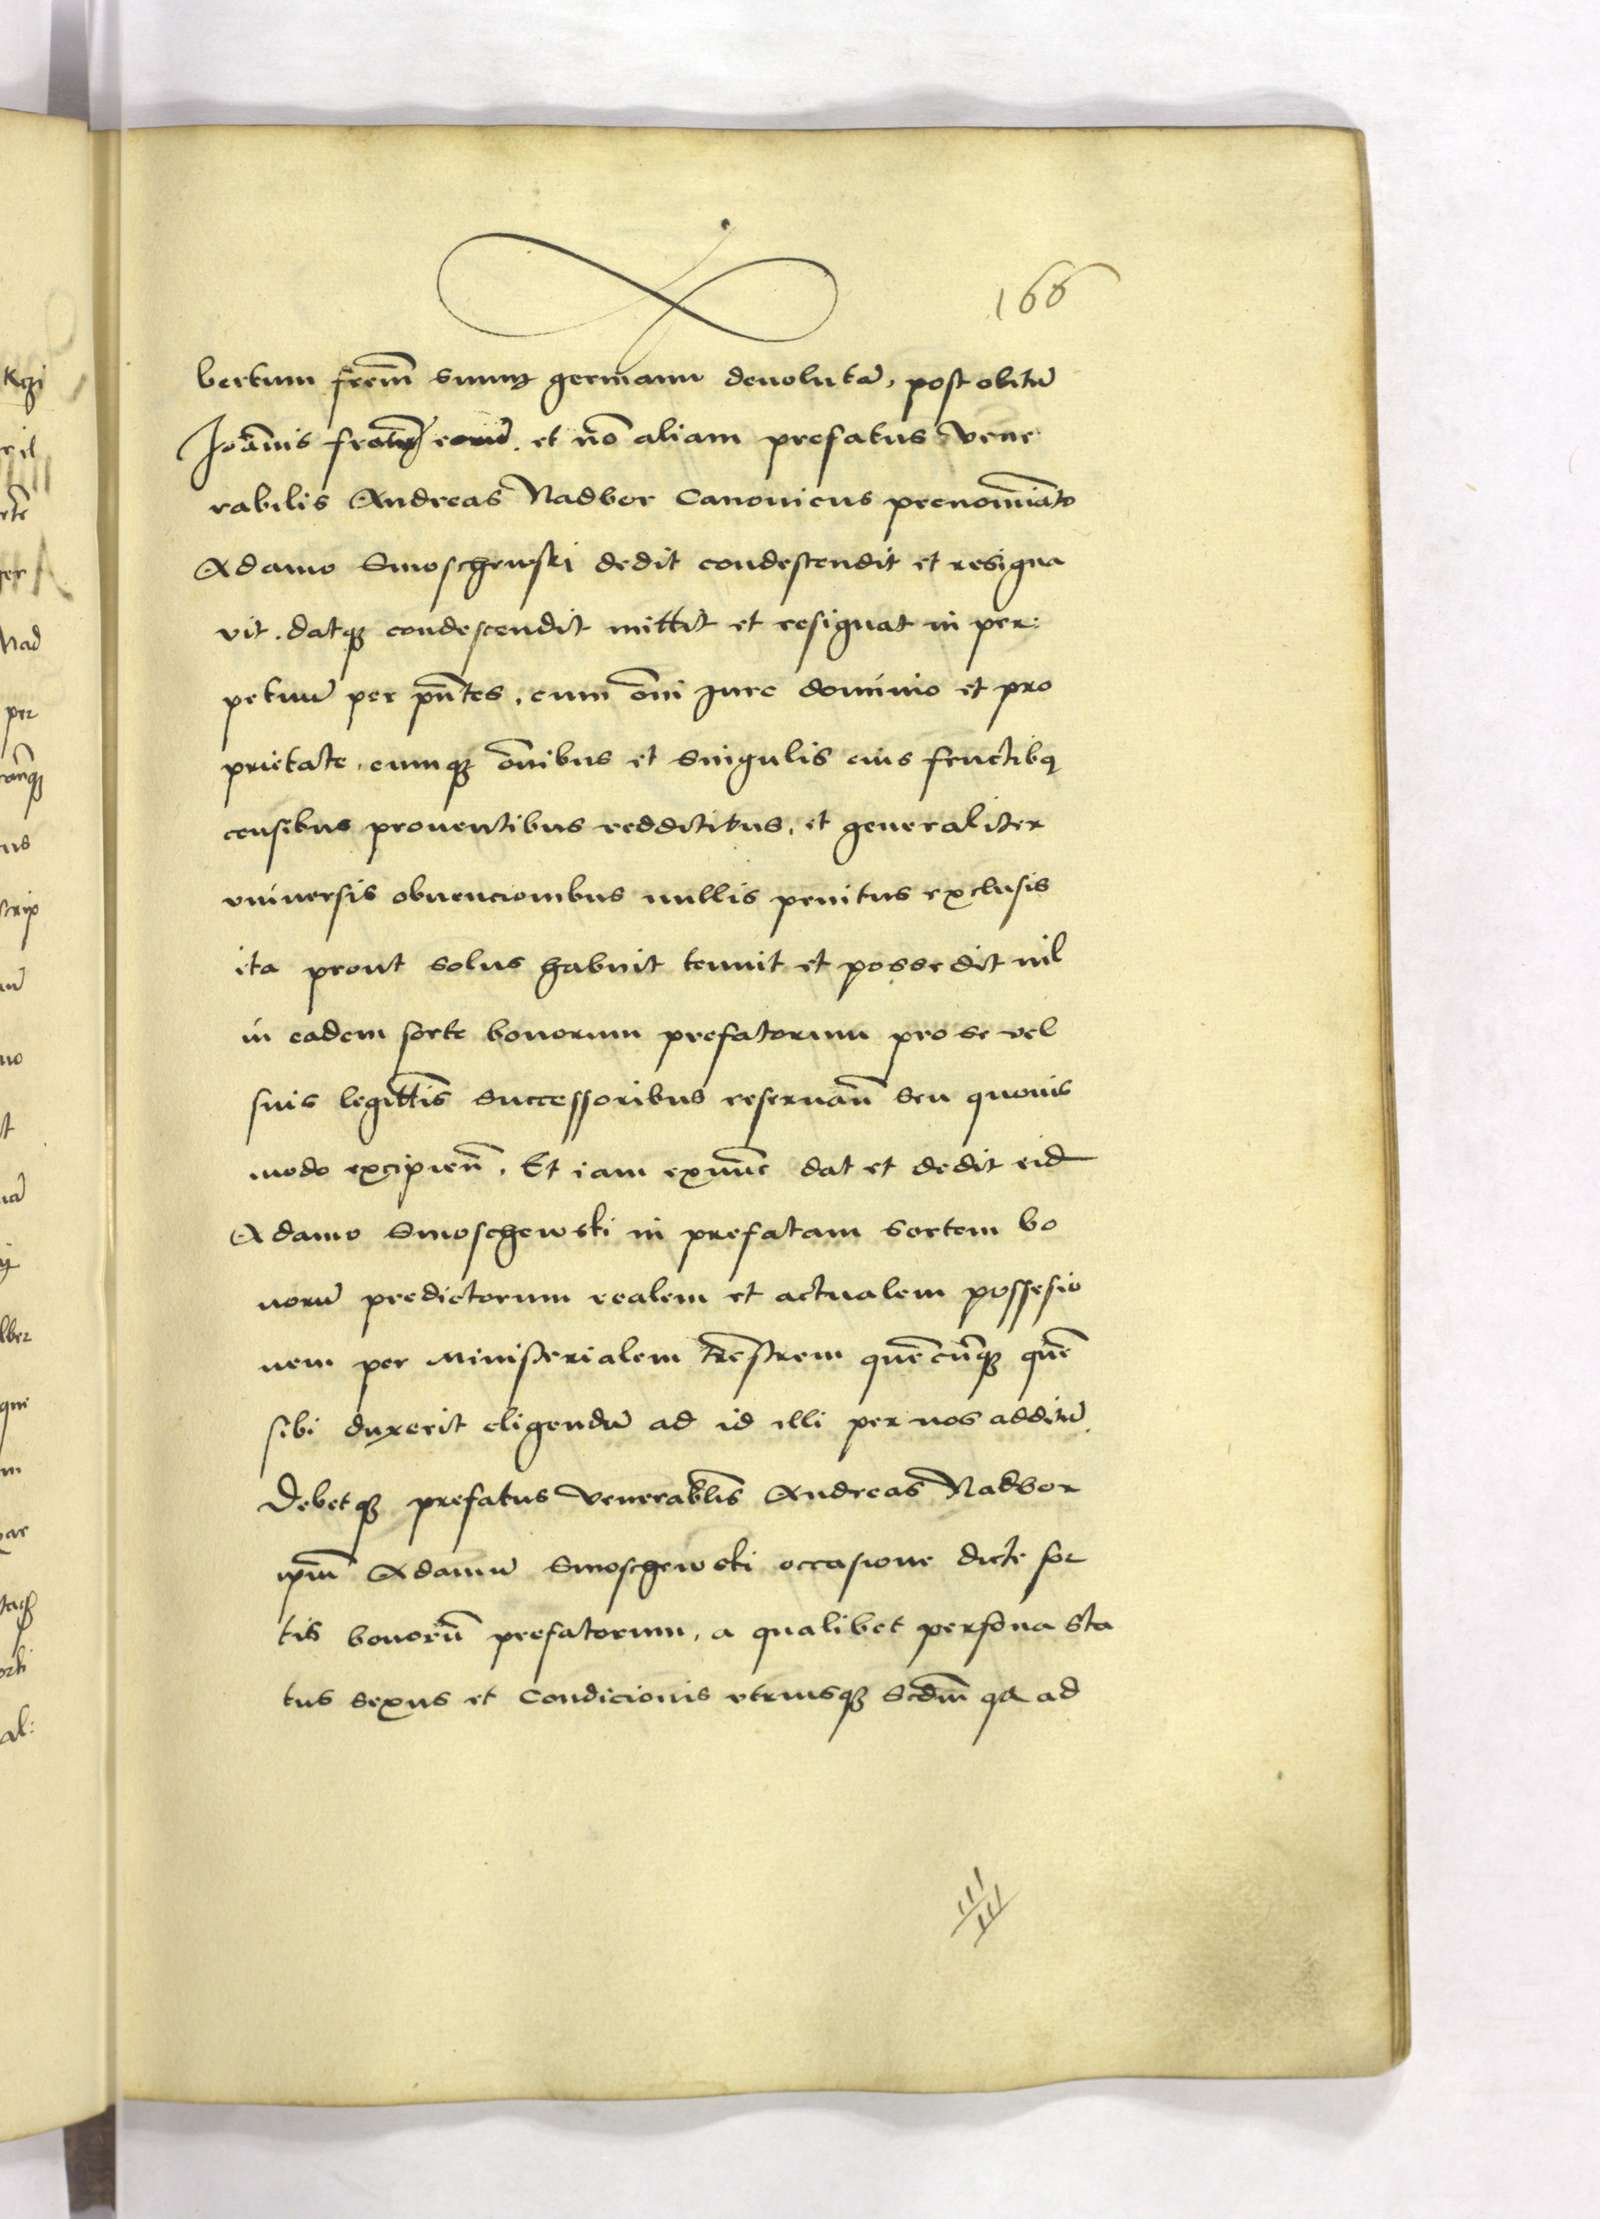 166
bertum frēm suum germanum deuolutā, post obitū
Joānis fratris eorū. et nō aliam prefatus Vene
rabilis Andreas Nadbor Canonicus prenomīato
Adamo Smoschewski dedit condescendit et resigna
vit. datq3 condescendit mittit et resignat in per:
petuū per pn̄tes, cum om̄i Jure dominio et pro
prietate, cumq3 om̄ibus et singulis eius fructibq
censibus prouentibus redditibus, et generaliter
vniuersis obuencionibus nullis penitus exclusis
ita prout solus habuit tenuit et possedit nil
in eadem sorte bonorum prefatorum pro se vel
suis legittīs successoribus reseruan̄ seu quouis
modo excipien̄. Et iam exnūc dat et dedit eid
Adamo Smoschewski in prefatam sortem bo
norū predictorum realem et actualem possessio
nem per Ministerialem trēstrem quēcūq3 quē
sibi duxerit eligendū ad id illi per nos additū.
Debetq3 prefatus Venerablīs Andreas Nadbor
ipm̄ Adamū Smoschewski occasione dicte sor
tis bonorū prefatorum, a qualibet persona sta
tus sexus et Condicionis vtriusq3 Scdm̄ qd ad